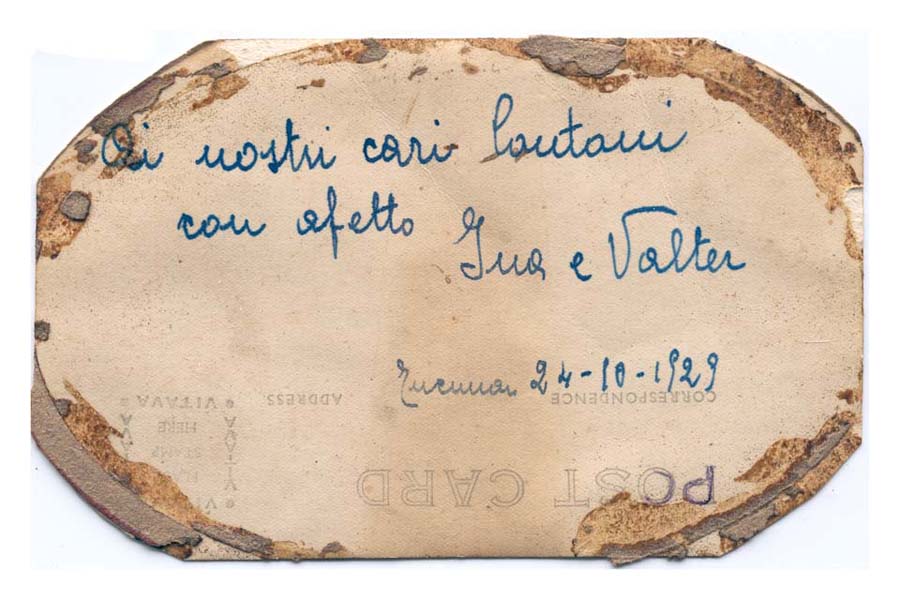 Ai nostri cari lontani
con afetto Ina e Valter
24-10-1929
CORRESPONDENCE ADDRESS
POST CARD
VITAVA
HERE
STAMP